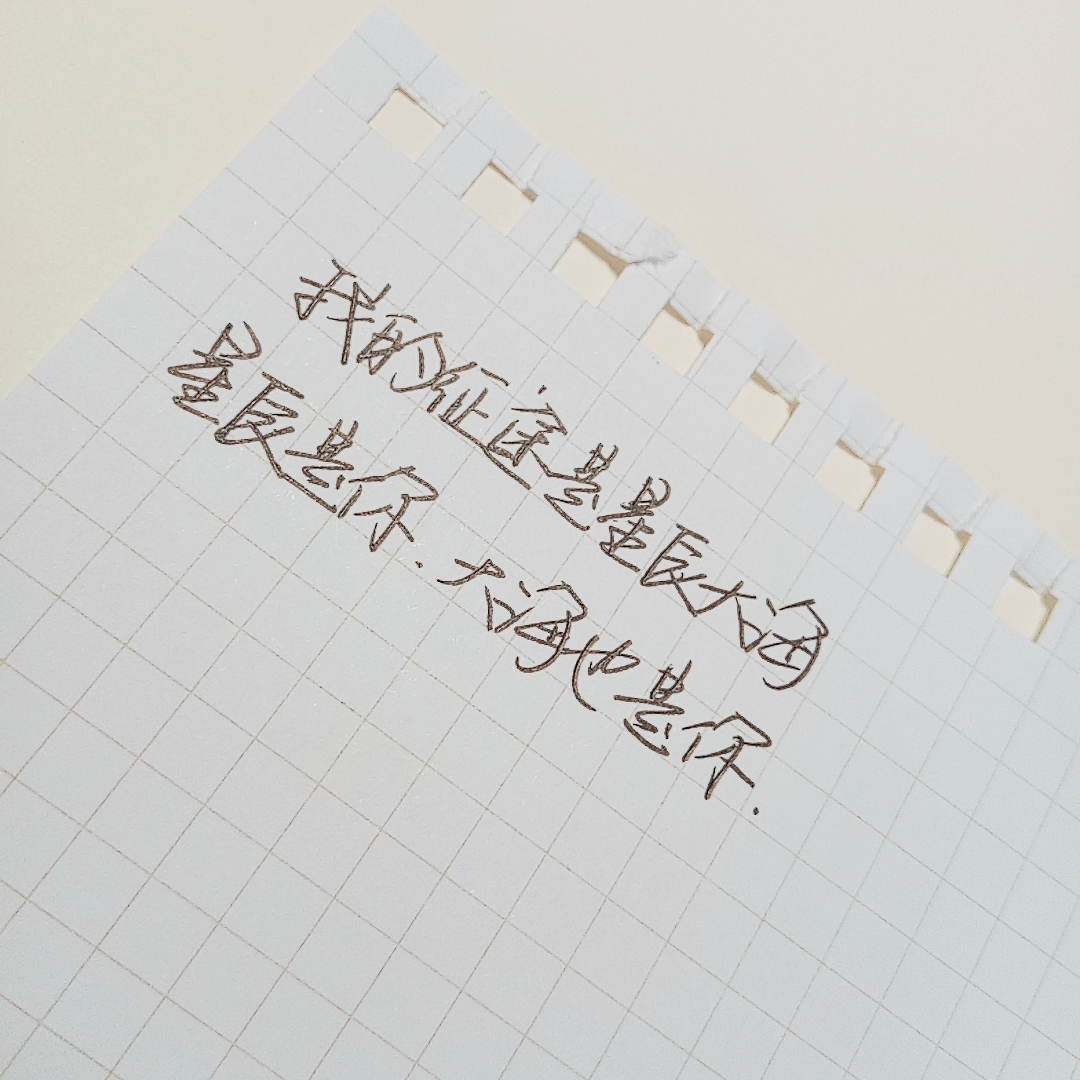 我的征途是星辰大海
星辰是你.大海也是你.